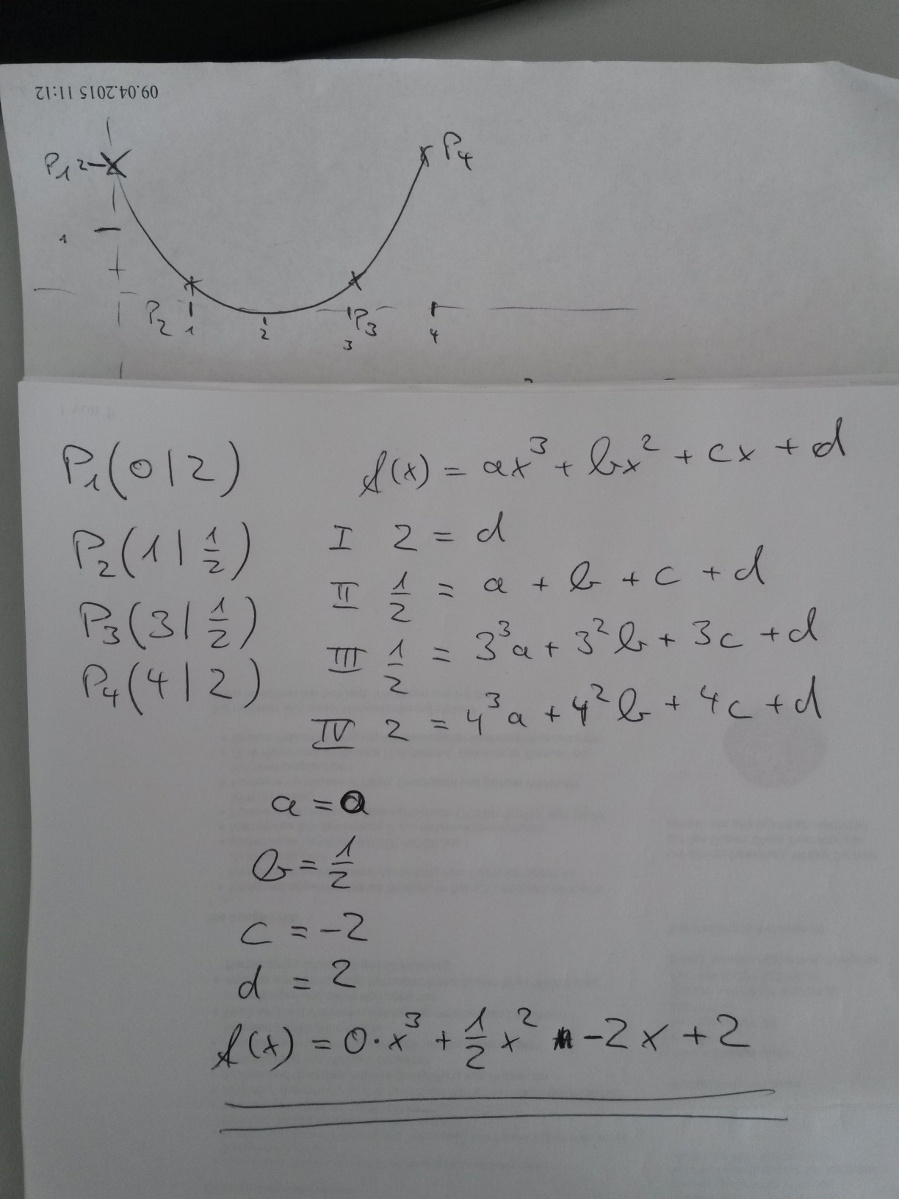 09.04.2015 11:12
P₁ 2
P₄
1
P₂ 1 2 3 P₃ 4
P₁(0|2) f(x) = ax³ + bx² + cx + d
I 2 = d
P₂(1|1/2) II 1/2 = a + b + c + d
P₃(3|1/2) III 1/2 = 3³a + 3²b + 3c + d
P₄(4|2) IV 2 = 4³a + 4²b + 4c + d
a = 0
b = 1/2
c = -2
d = 2
f(x) = 0·x³ + 1/2 x² -2x + 2